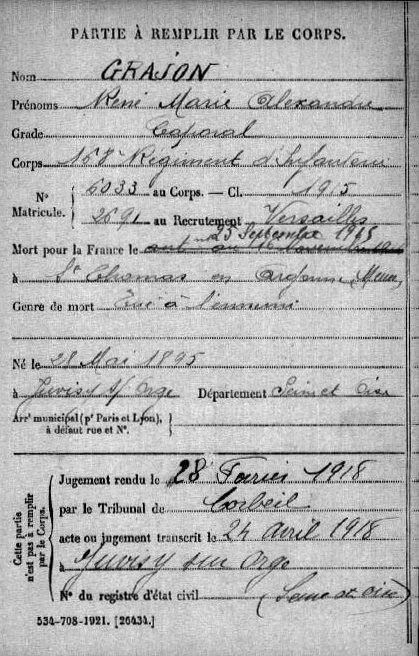 PARTIE À REMPLIR PAR LE CORPS.
Nom GRAJON
Prénoms René Marie Alexandre
Grade Caporal
Corps 158e Régiment d'Infanterie
N° Matricule. { 6033 au Corps. — Cl. 1915
2691 au Recrutement Versailles
25 Septembre 1915
Mort pour la France le
à St Thomas en Argonne (Meuse)
Genre de mort Tué à l'ennemi
Né le 28 Mai 1895
à Juvisy s/ Orge Département Seine et Oise
Arrt municipal (pr Paris et Lyon), }
à défaut rue et N°.
Cette partie n'est pas à remplir par le Corps.
Jugement rendu le 28 Février 1918
par le Tribunal de Corbeil
acte ou jugement transcrit le 24 avril 1918
à Juvisy sur Orge
N° du registre d'état civil (Seine et Oise)
534-708-1921. [26434.]